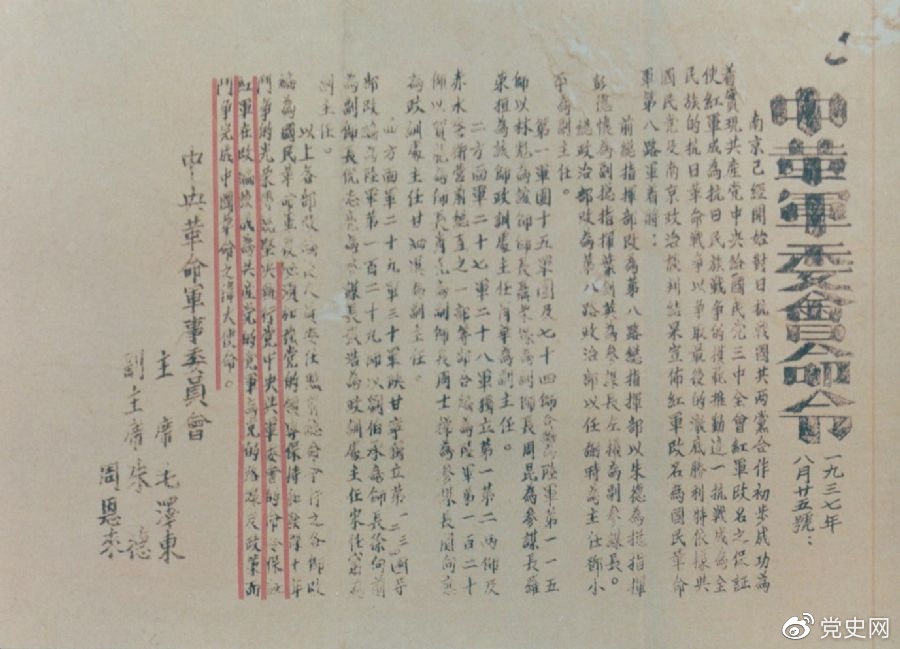 中華軍委會命令
一九三七年
八月廿五號：
南京已經開始對日抗戰國共兩黨合作初步成功為
着實現共産党中央給國民党三中全會紅軍改名之保証
使紅軍成為抗日民族戰争的模范推動這一抗戰成為全
民族的抗日革命戰争以争取最後的澈底勝利特依據共
國民党及南京政治談判結果宣佈紅軍改名為國民革命
軍第八路軍着將：
前總指揮部改為第八路總指揮部以朱德為總指揮
彭德懷為副總指揮葉劍英為參謀長左權為副參謀長。
總政治部改為第八路政治部以任弼時為主任鄧小
平為副主任。
第一軍團十五軍團及七十四師合編為陸軍第一一五
師以林彪為該師師長聶榮臻為副師長周昆為參謀長羅
榮桓為該師政訓處主任蕭華為副主任。
二方面軍二十七軍二十八軍獨立第一第二兩師及
赤水警衛營前總直之一部等部合編為陸軍第一百二十
師以賀龍為師長蕭克為副師長周士掦為參謀長關向應
為政訓處主任甘泗淇為副主任。
四方面軍二十九軍三十軍陝甘寧獨立第一二三四等
部改編為陸軍第一百二十九師以劉伯承為師長徐向前
為副師長倪志亮為參謀長張浩為政訓處主任宋任窮為
副主任。
以上各部改編後人員委任照前總命令行之各師改
編為國民革命軍後必須加強党的領導保持和發揮十年
鬥争的光榮傳統堅决執行党中央與軍委會的命令保証
紅軍在改編後成為共産党的党軍為党的路線及政策而
鬥争完成中國革命之偉大使命。
中央革命軍事委員會
主席毛澤東
副主席朱德
周恩來
党史网